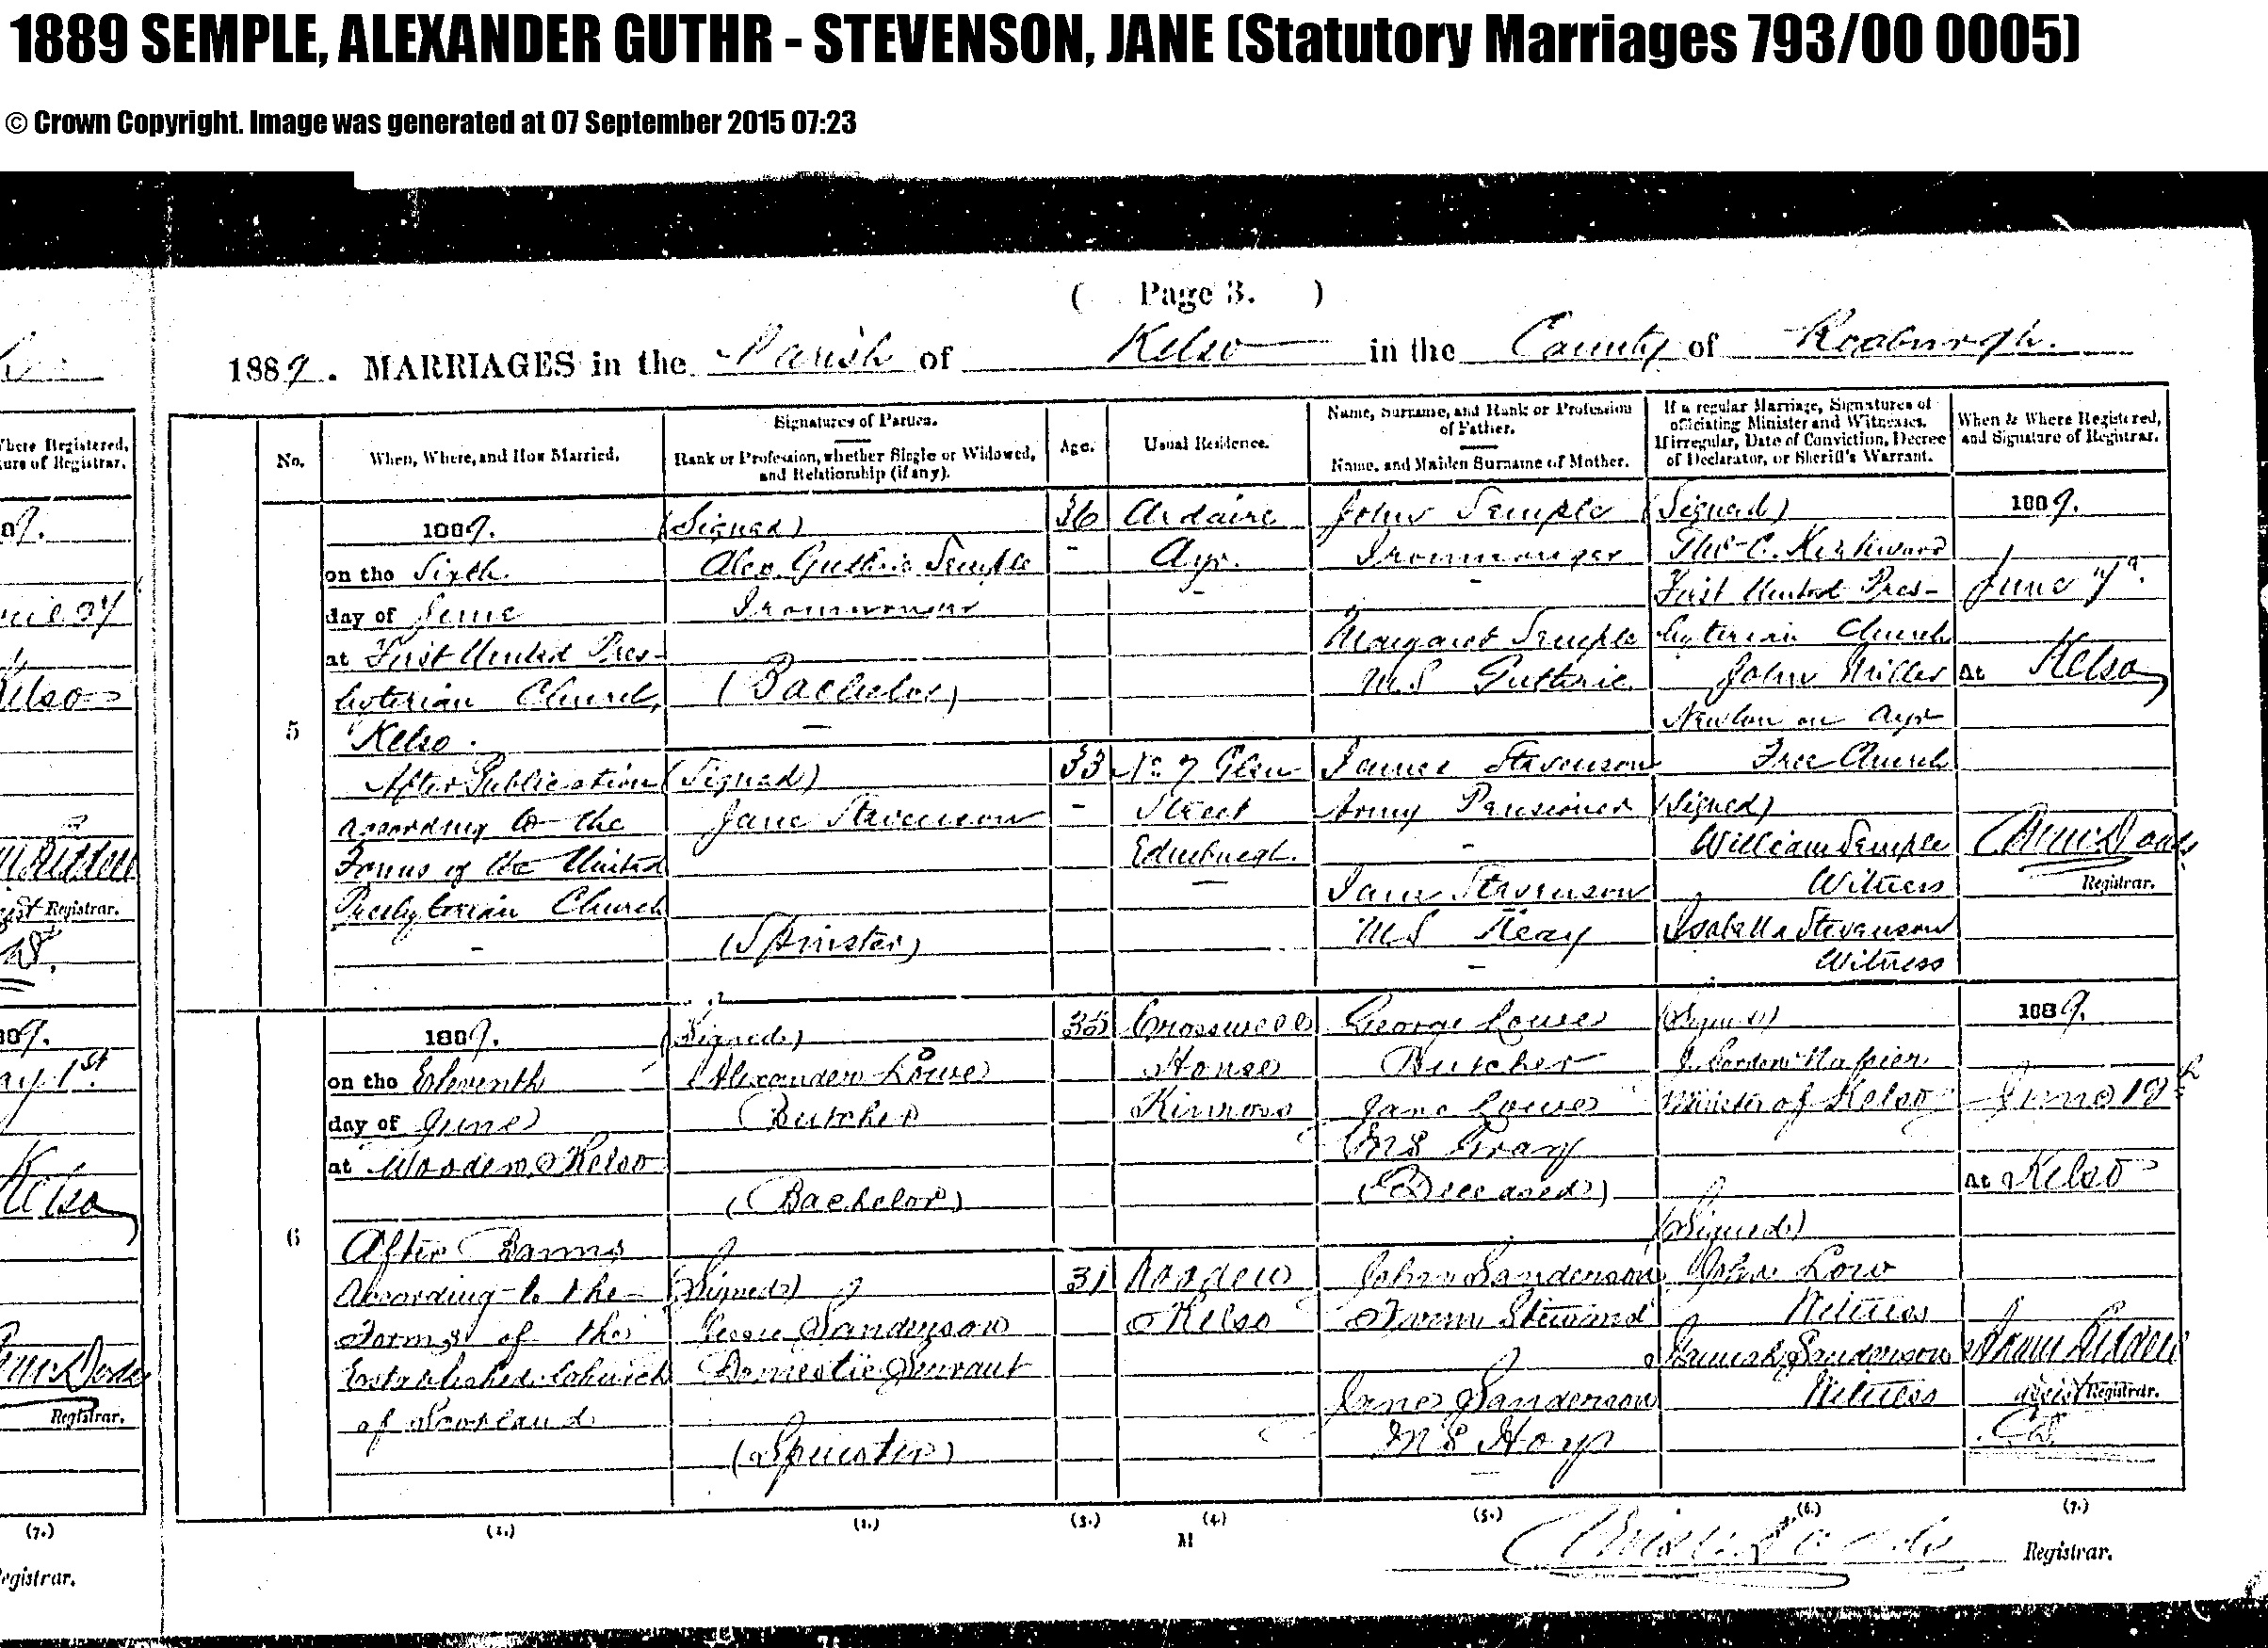 1889 SEMPLE, ALEXANDER GUTHR - STEVENSON, JANE (Statutory Marriages 793/00 0005)
© Crown Copyright. Image was generated at 07 September 2015 07:23
( Page 3. )
1889. MARRIAGES in the Parish of Kelso in the County of Roxburgh.
No.
When, Where, and How Married.
Signatures of Parties.
Rank or Profession, whether Single or Widowed,
and Relationship (if any).
Age.
Usual Residence.
Name, Surname, and Rank or Profession
of Father.
Name, and Maiden Surname of Mother.
If a regular Marriage, Signatures of
officiating Minister and Witnesses.
If irregular, Date of Conviction, Decree
of Declarator, or Sheriff's Warrant.
When & Where Registered,
and Signature of Registrar.
5
1889.
on the Sixth
day of June
at First United Pres-
byterian Church,
Kelso.
After Publication
according to the
Forms of the United
Presbyterian Church
(Signed)
Alex. Guthrie Semple
Ironmonger
(Bachelor)
(Signed)
Jane Stevenson
(Spinster)
36
33
Ayr.
No 7 Glen
Street
Edinburgh.
John Semple
Ironmonger
Margaret Semple
M.S Guthrie
James Stevenson
Army Pensioner
Jane Stevenson
M.S Keay
(Signed)
Thos C. Kirkwood
First United Pres-
byterian Church
John Miller
Newton on Ayr
Free Church
(Signed)
William Semple
Witness
Isabella Stevenson
Witness
1889.
June 7th.
At Kelso
Registrar.
6
1889.
on the Eleventh
day of June
at Wooden, Kelso
After Banns
According to the
Forms of the
Established Church
of Scotland
(Signed)
Alexander Lowe
Butcher
(Bachelor)
(Signed)
Jessie Sanderson
Domestic Servant
(Spinster)
35
31
Crosswell
House
Kinross
Wooden
Kelso
George Lowe
Butcher
Jane Lowe
M S Gray
(Deceased)
John Sanderson
Farm Steward
Jane Sanderson
M S Hoy
(Signed)
J. Gordon Napier
Minister of Kelso
(Signed)
John Low
Witness
Sanderson
Witness
1889.
June 12th
At Kelso
Assist Registrar.
(1.)
(2.)
(3.)
(4.)
(5.)
(6.)
(7.)
M
Registrar.